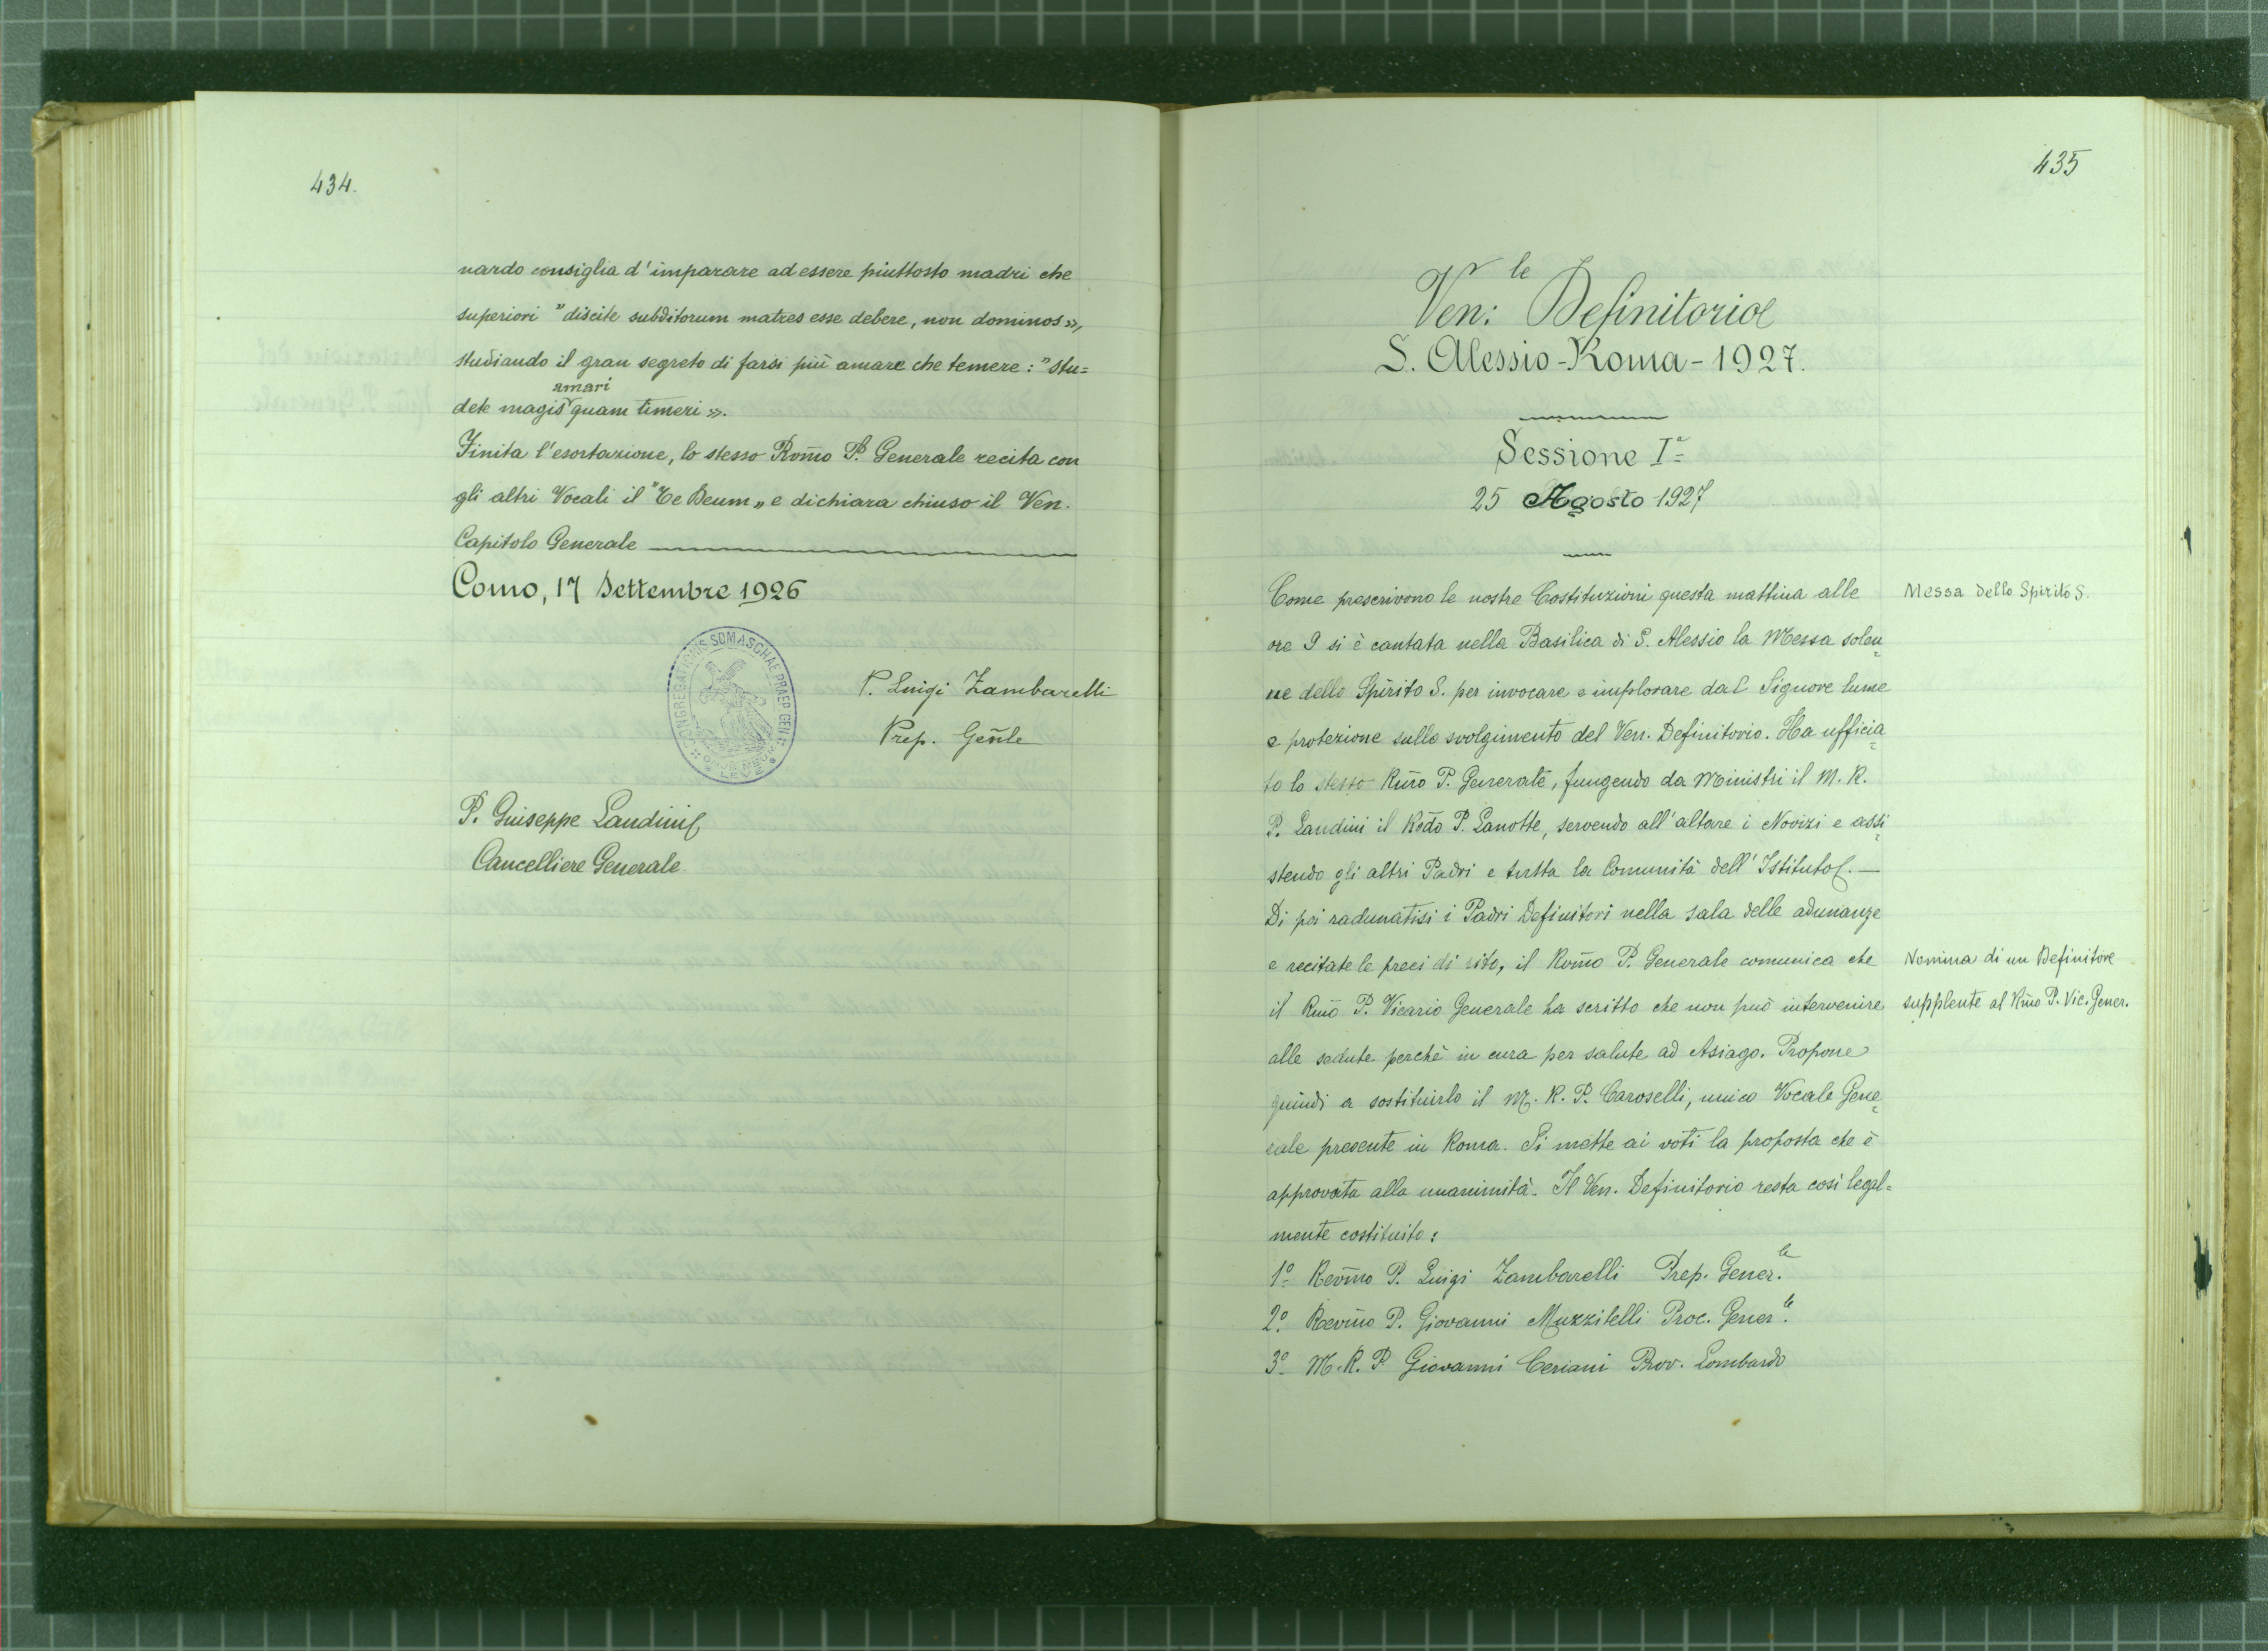 434.
nardo consiglia d'imparare ad essere piuttosto madri che
superiori "discite subditorum matres esse debere, non dominos»,
studiando il gran segreto di farsi più amare che temere: "stu=
amari
dete magis quam timeri».
Finita l'esortazione, lo stesso Rom̃o P. Generale recita con
gli altri Vocali il "Te Deum„ e dichiara chiuso il Ven.
Capitolo Generale
Como, 17 Settembre 1926
CONGREGATIONIS SOMASCHAE PRAEP. GEN.
ONUS MEUM LEVE
P. Luigi Zambarelli
Prep. Geñle
P. Giuseppe Landini
Cancelliere Generale
435
Ven:le Definitorio
S. Alessio - Roma - 1927.
Sessione Iª
25 Agosto 1927
Come prescrivono le nostre Costituzioni questa mattina alle
ore 9 si è cantata nella Basilica di S. Alessio la Messa solen=
ne dello Spirito S. per invocare e implorare dal Signore lume
e protezione sullo svolgimento del Ven. Definitorio. Ha officia=
to lo stesso Rm̃o P. Generale, fungendo da Ministri il M. R.
P. Landini il Rod̃o P. Zanotte, servendo all'altare i Novizi e assi=
stendo gli altri Padri e tutta la Comunità dell'Istituto. —
Di poi radunatisi i Padri Definitori nella sala delle adunanze
e recitate le preci di rito, il Rom̃o P. Generale comunica che
il Rm̃o P. Vicario Generale ha scritto che non può intervenire
alle sedute perchè in cura per salute ad Asiago. Propone
quindi a sostituirlo il M. R. P. Caroselli, unico Vocale Gene=
rale presente in Roma. Si mette ai voti la proposta che è
approvata alla unanimità. Il Ven. Definitorio resta così legal=
mente costituito:
1º Revm̃o P. Luigi Zambarelli Prep. Gener.le
2º. Revm̃o P. Giovanni Muzzitelli Proc. Gener.le
3º M. R. P Giovanni Ceriani Prov. Lombardo
Messa dello Spirito S.
Nomina di un Definitore
supplente al Rm̃o P. Vic. Gener.